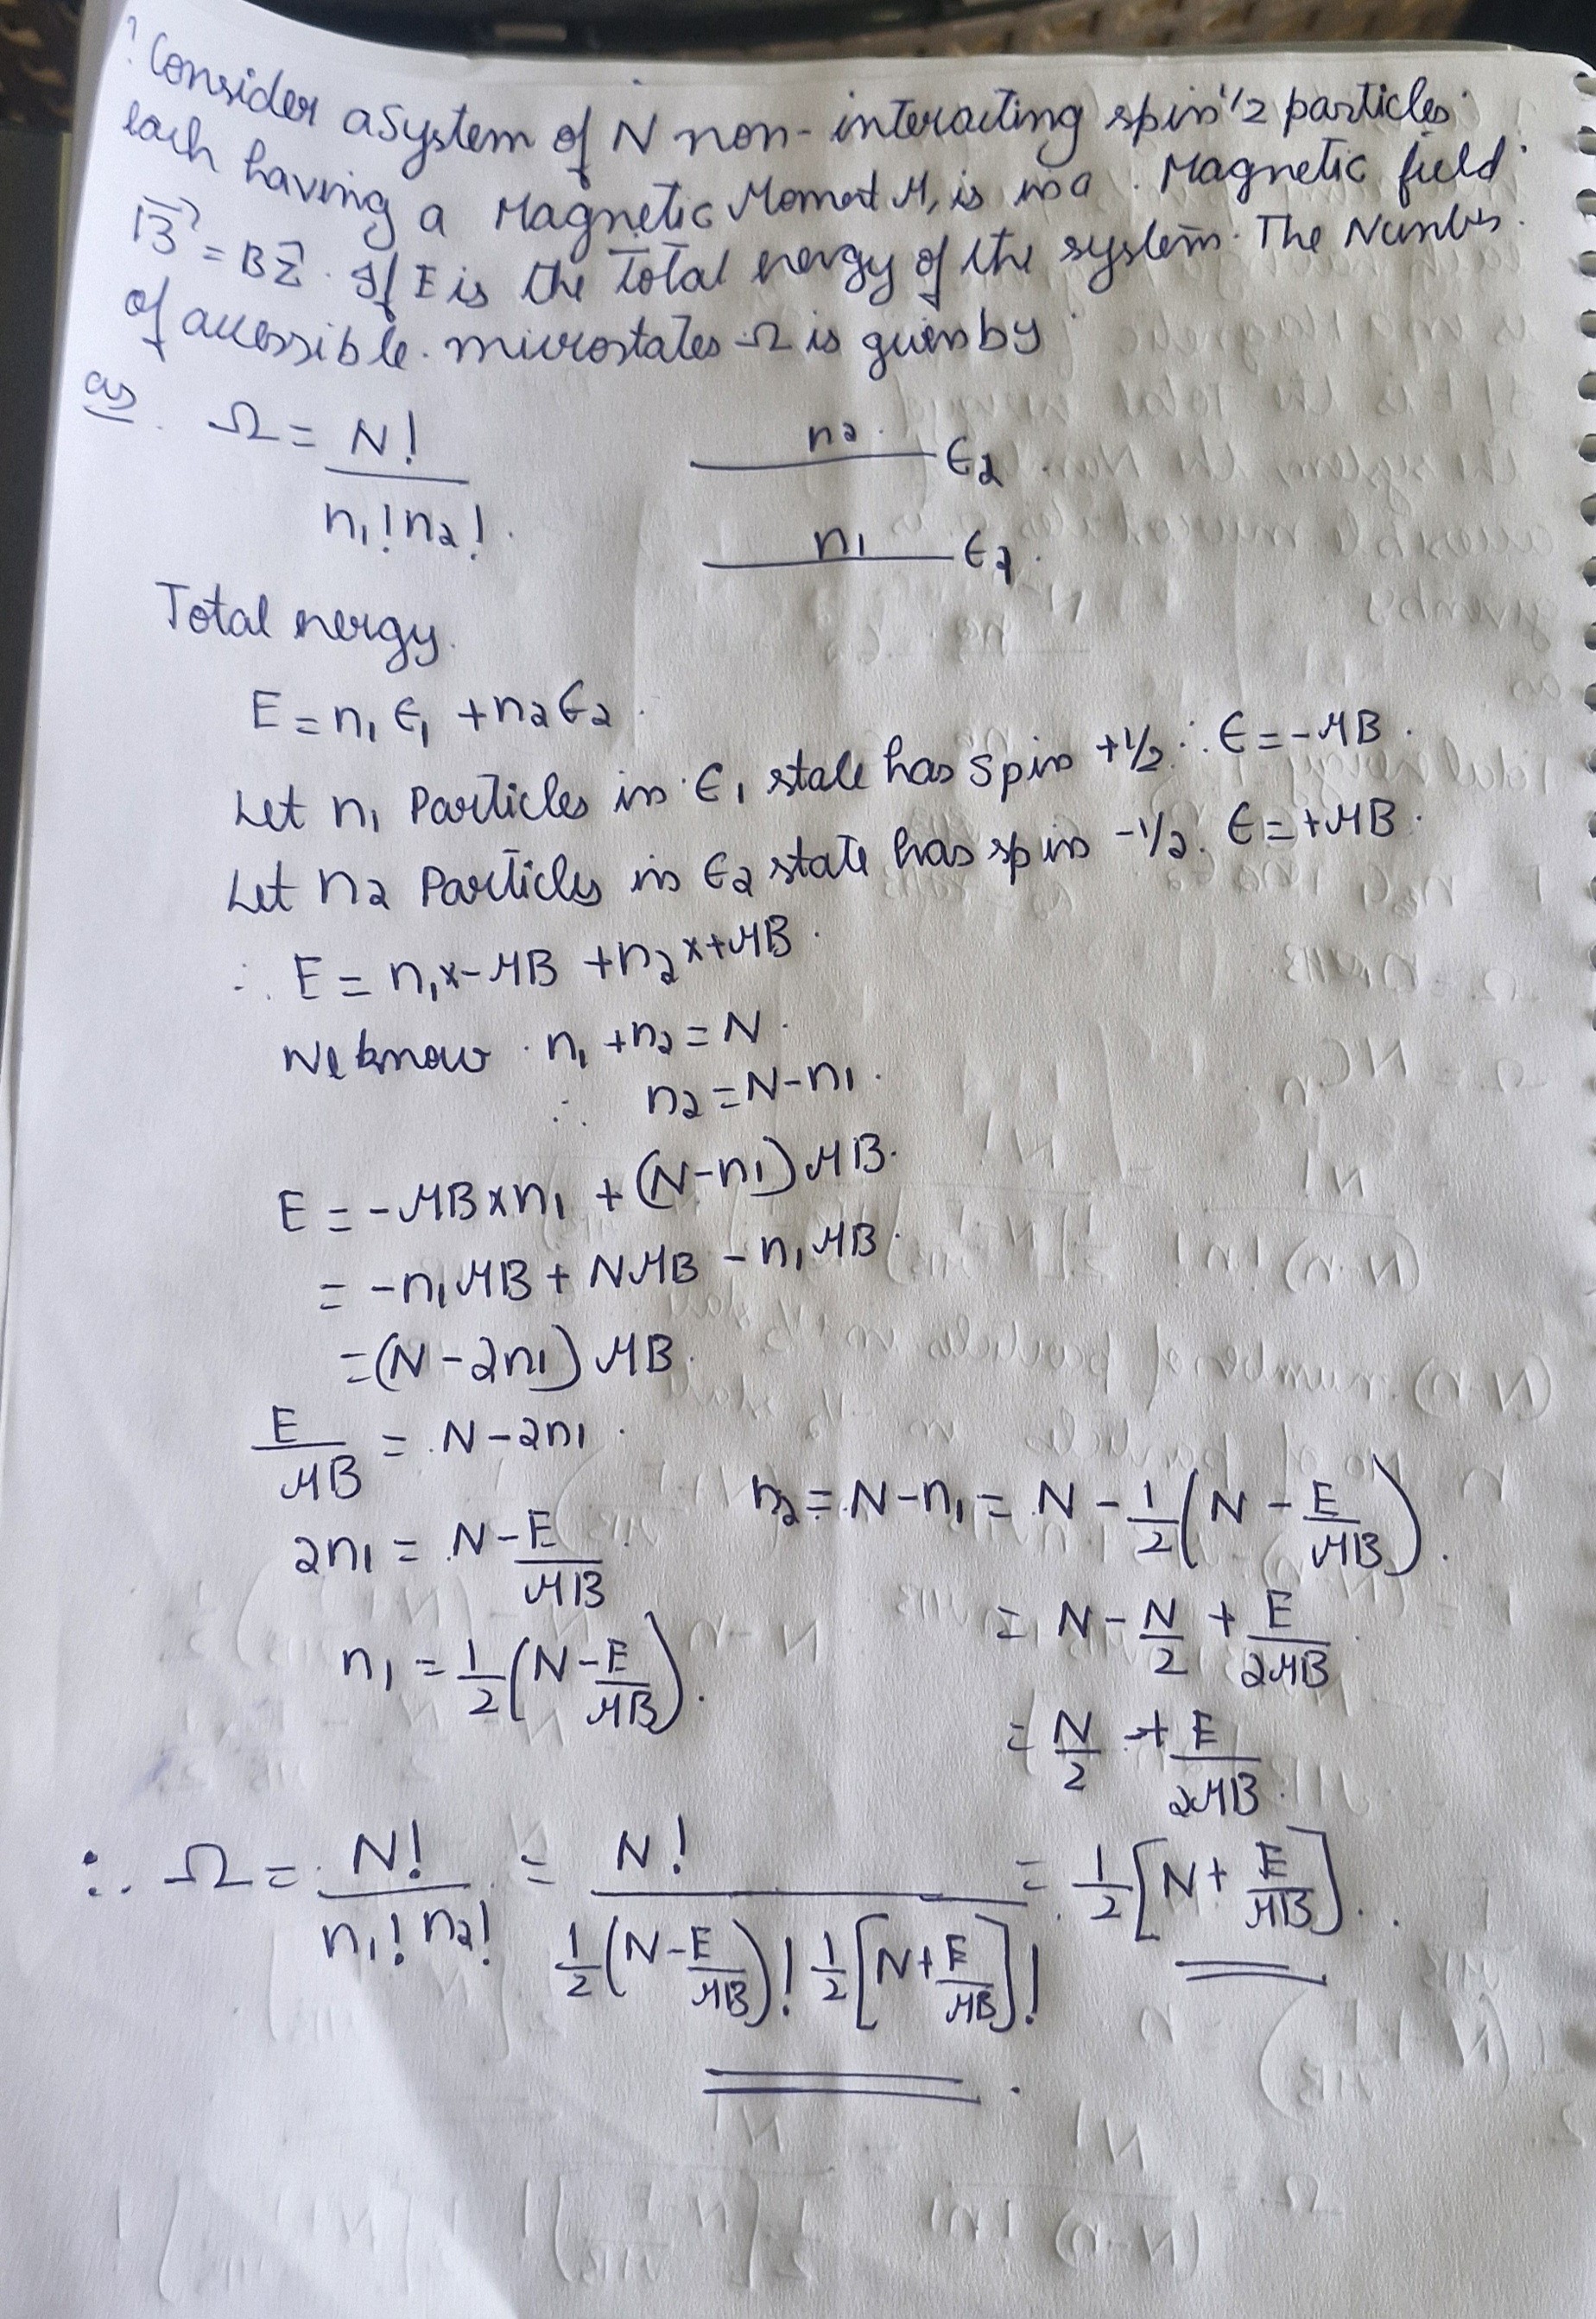 ? Consider a system of N non-interacting spin 1/2 particles
each having a Magnetic Moment μ, is in a Magnetic field
B⃗ = Bz⃗. If E is the Total energy of the system. The Number
of accessible microstates Ω is given by
as Ω = N! / n₁! n₂!
n₂ ϵ₂
n₁ ϵ₁
Total energy
E = n₁ ϵ₁ + n₂ ϵ₂
Let n₁ Particles in ϵ₁ state has spin +1/2 ∴ ϵ = -μB
Let n₂ Particles in ϵ₂ state has spin -1/2. ϵ = +μB
∴ E = n₁ x -μB + n₂ x +μB
We know n₁ + n₂ = N
∴ n₂ = N - n₁
E = -μB x n₁ + (N - n₁) μB
= -n₁ μB + NμB - n₁ μB
= (N - 2n₁) μB
E/μB = N - 2n₁
2n₁ = N - E/μB
n₁ = 1/2 (N - E/μB)
n₂ = N - n₁ = N - 1/2 (N - E/μB)
= N - N/2 + E/2μB
= N/2 + E/2μB
= 1/2 [N + E/μB]
∴ Ω = N! / n₁! n₂! = N! / 1/2 (N - E/μB)! 1/2 [N + E/μB]!